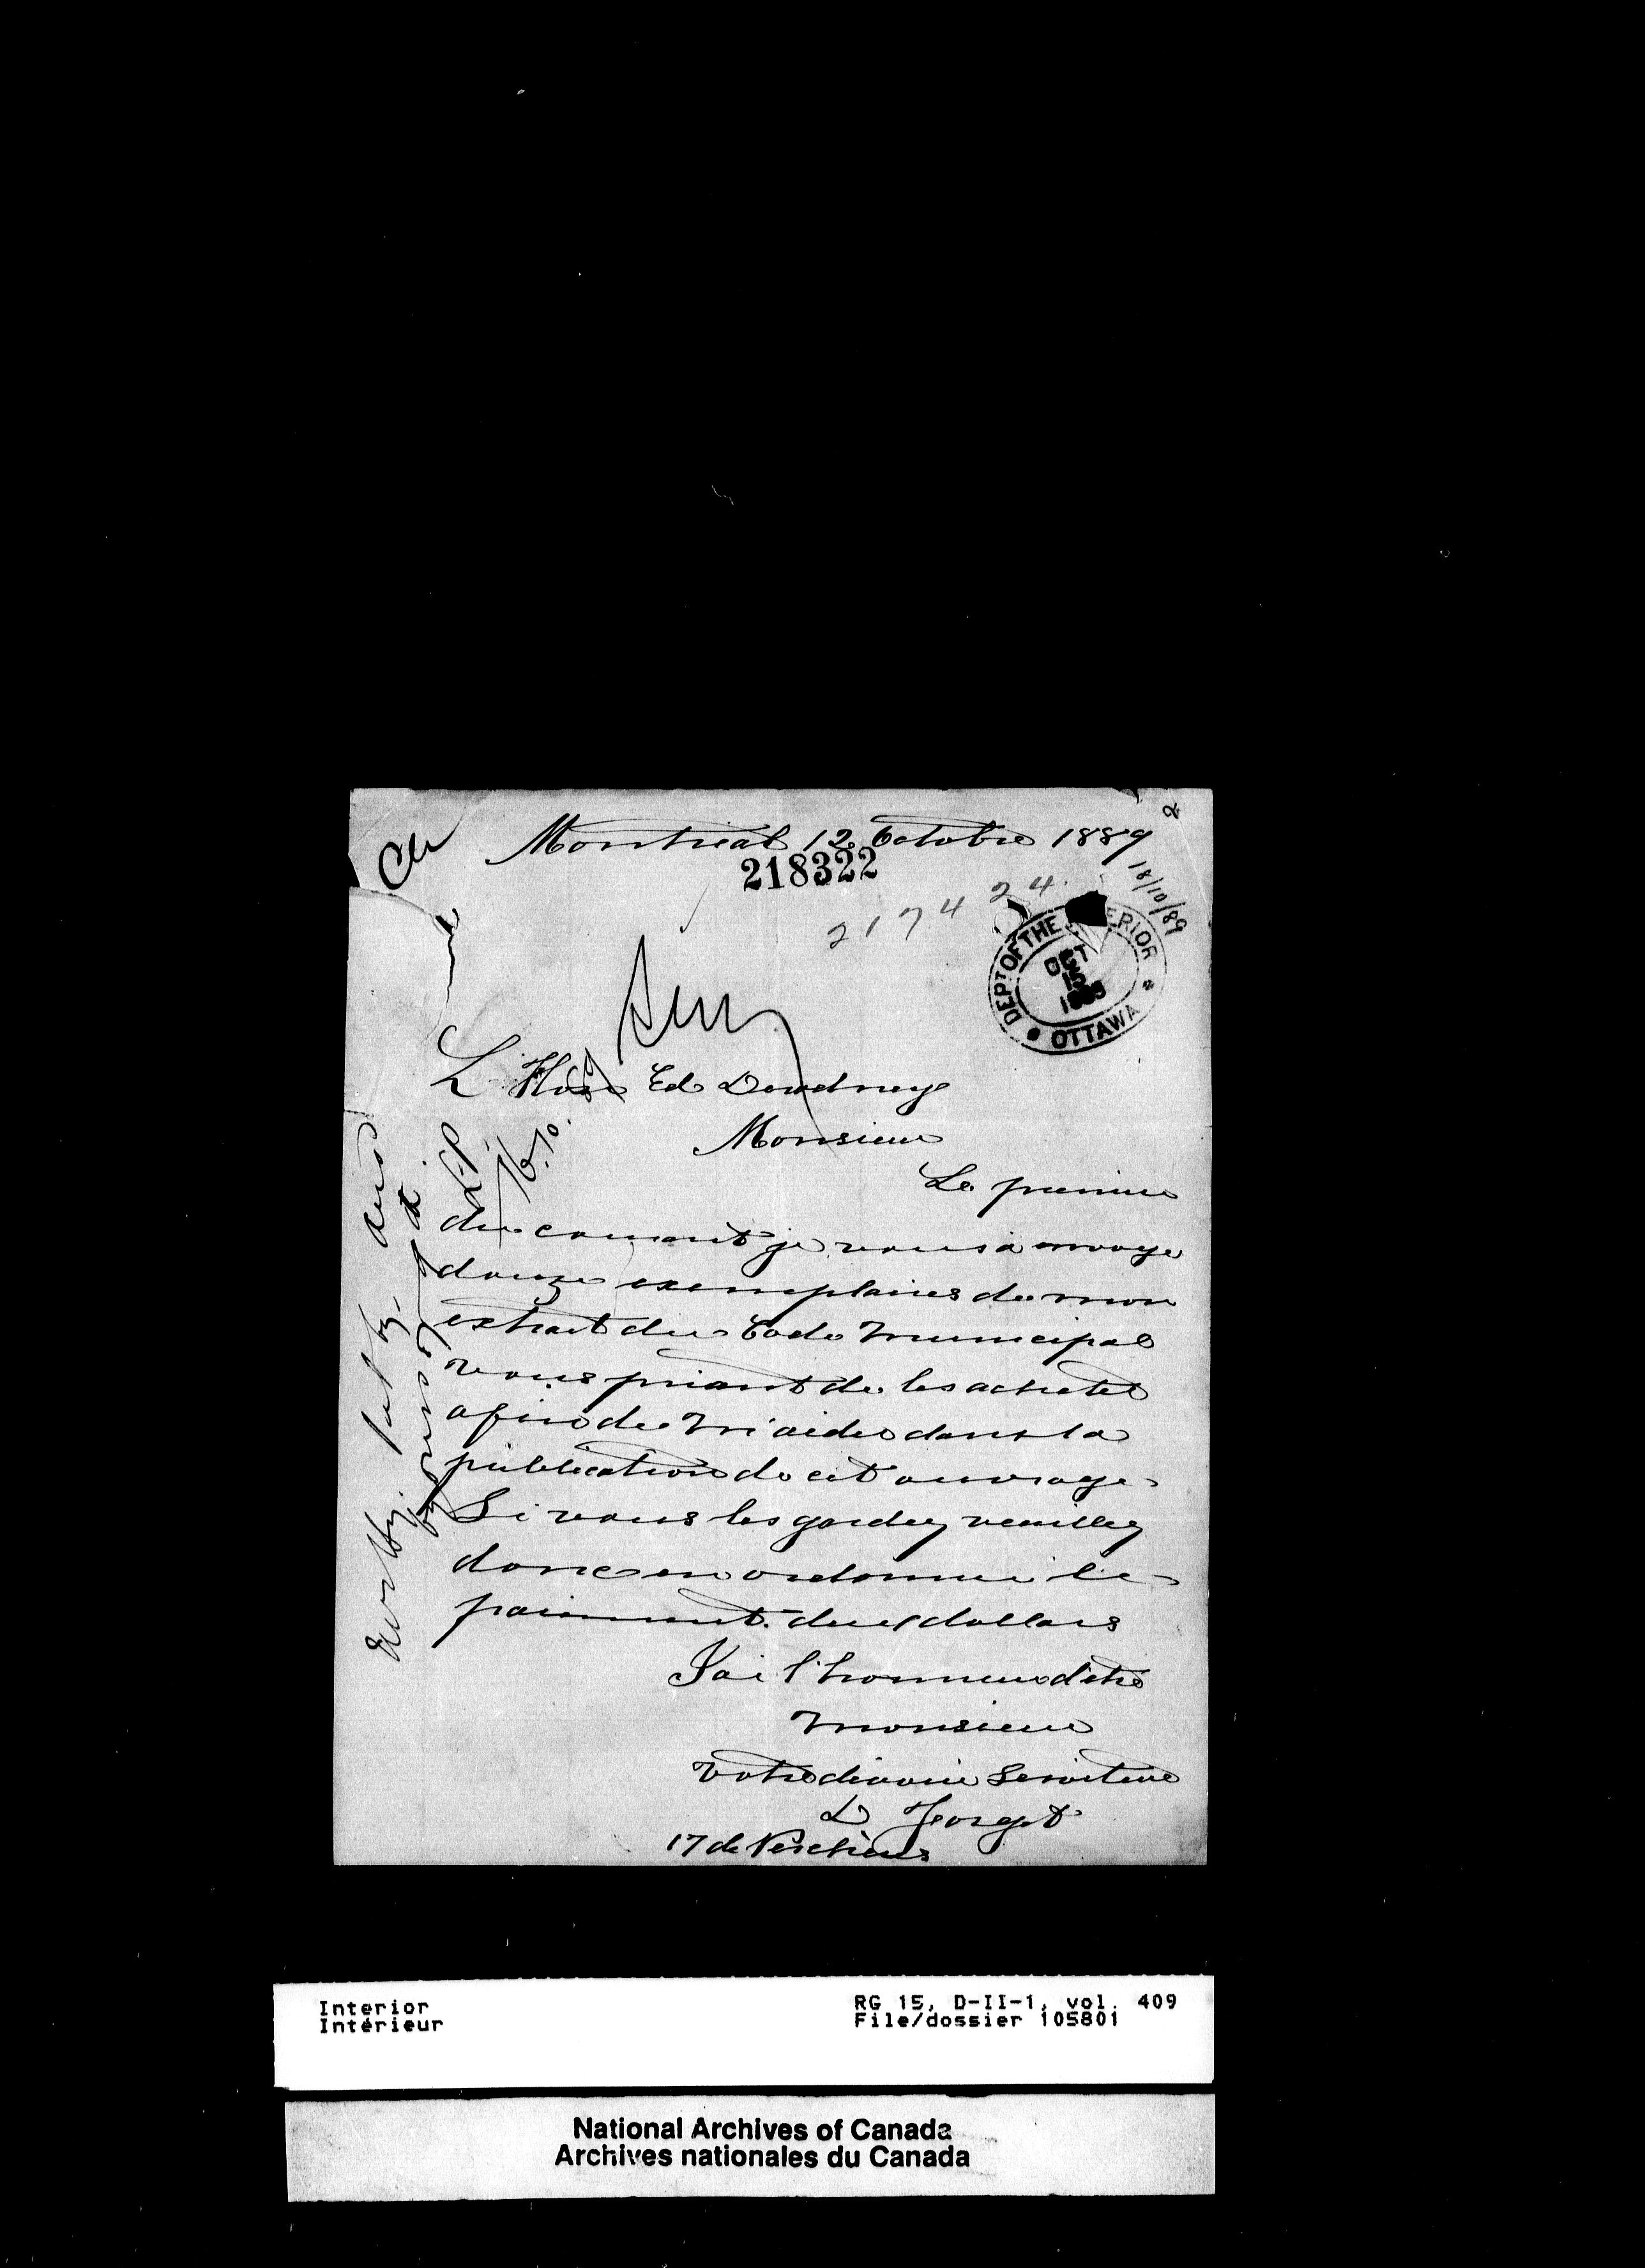 Montreal 12 Octobre 1889
2
218322
18/10/89
217424
DEPT OF THE INTERIOR
OCT
15
1889
OTTAWA
L'Hon Ed Dewdney
Monsieur
Le premier
du courant je vous a envoye
douze exemplaires de mon
extrait du Code Municipal
vous priant de les acheter
afin de m'aider dans la
publication de cet ouvrage
Si vous les gardez veuillez
donc en ordonner le
paiement. deux dollars
J'ai l'honneur d'être
Monsieur
Votre dévoué Serviteur
L Forget
17 de Verchères
Interior
Intérieur
RG 15, D-II-1, vol. 409
File/dossier 105801
National Archives of Canada
Archives nationales du Canada